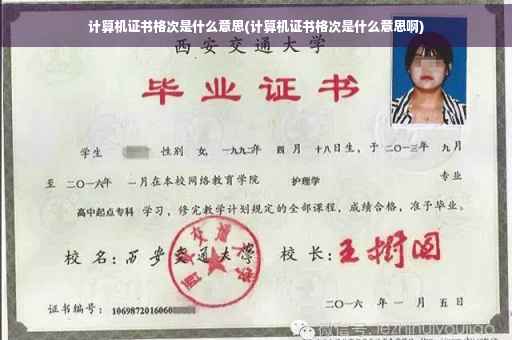 计算机证书格次是什么意思(计算机证书格次是什么意思啊)
西安交通大学
毕业证书
学生 性别 女, 一九九二年 四 月 十八日生, 于 二〇一三年 九月
至 二〇一六年 一月在本校网络教育学院 护理学 专业
高中起点专科 学习, 修完教学计划规定的全部课程, 成绩合格, 准予毕业。
校 名: 西安交通大学 校 长: 王树国
证书编号: 1069872016060
二〇一六 年 一 月 五 日
微信号: jiezhihuiyoujiao